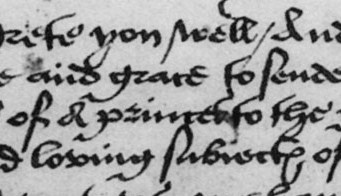 grete you well / And
and grace to sende
of A prince to the
loving subiectes of